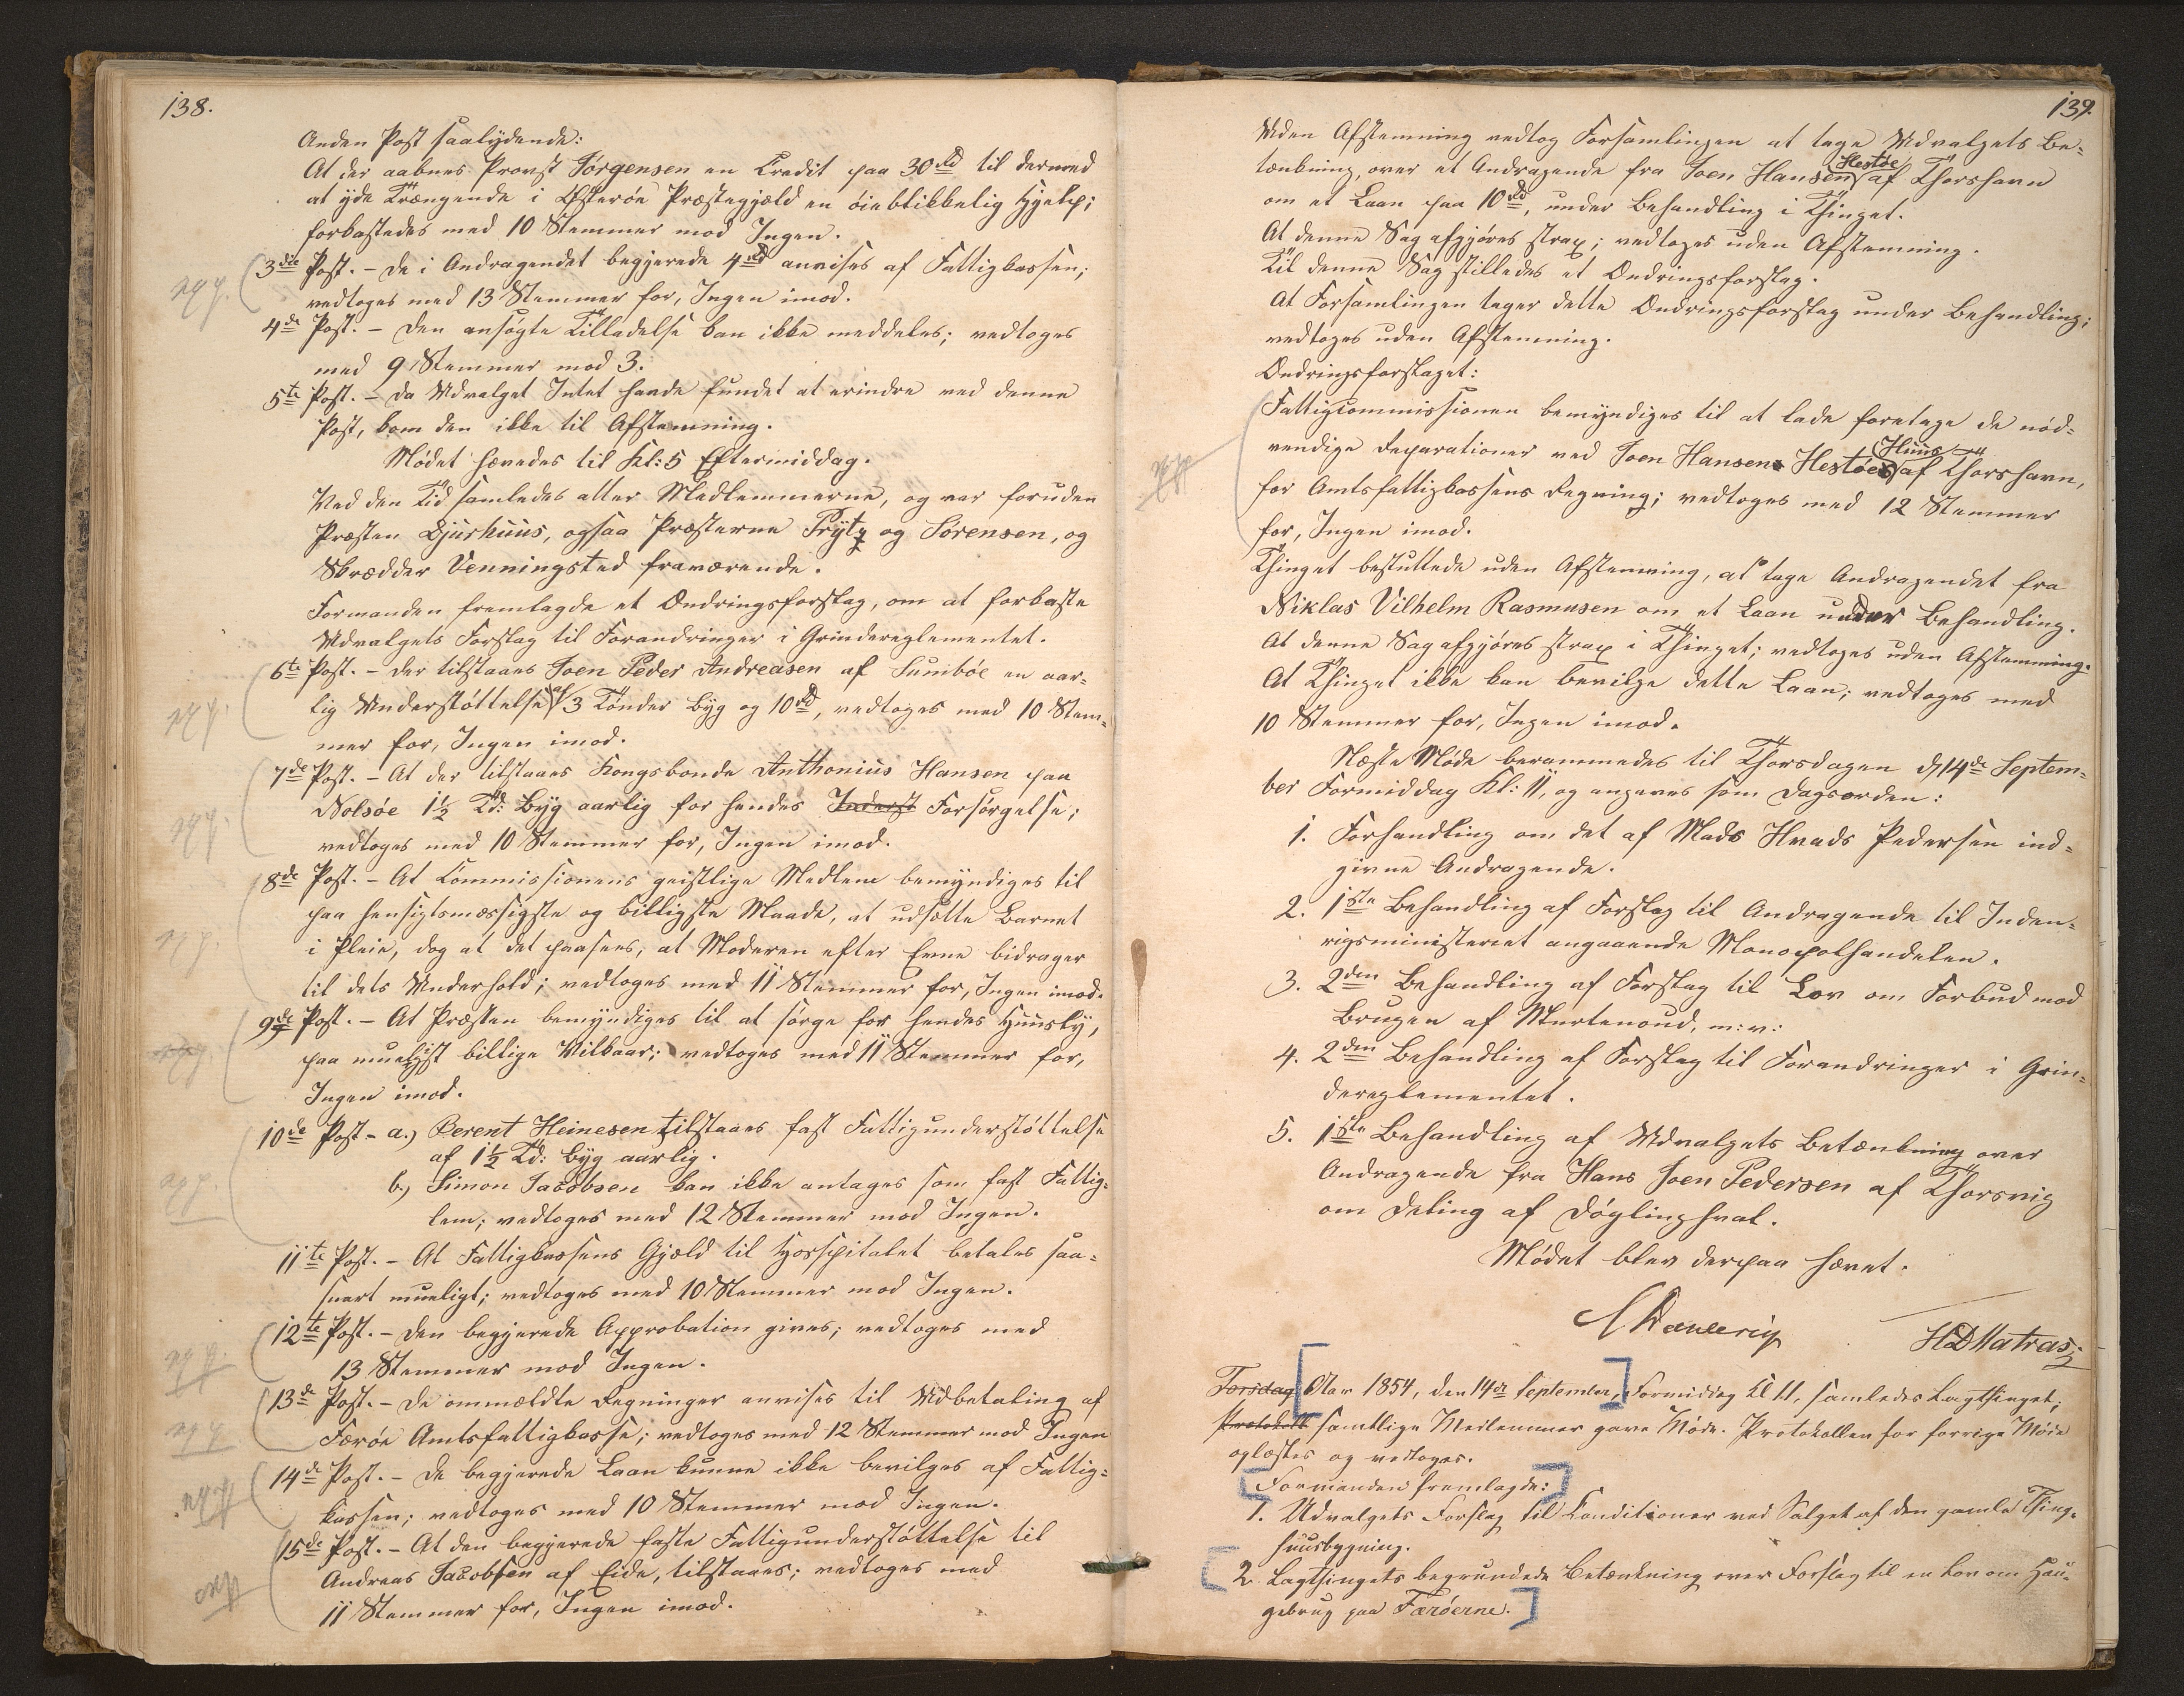 138.
Anden Post saalydende:
At der aabnes Provst Jørgensen en Credit paa 30 rd til dermed
at yde Trængende i Østerøe Præstegjæld en øieblikkelig Hjelp;
forkastedes med 10 Stemmer mod Ingen.
3die Post. – De i Andragendet begjerede 4 rd anvises af Fattigkassen;
vedtoges med 13 Stemmer for, Ingen imod.
4de Post. – Den ansøgte Tilladelse kan ikke meddeles; vedtoges
med 9 Stemmer mod 3.
5te Post. – Da Udvalget Intet havde fundet at erindre ved denne
Post, kom den ikke til Afstemning.
Mødet hævedes til Kl: 5 Eftermiddag.
Ved den Tid samledes atter Medlemmerne, og var foruden
Præsten Djurhuus, ogsaa Præsterne Prytz og Sørensen, og
Skrædder Venningsted fraværende.
Formanden fremlagde et Ændringsforslag, om at forkaste
Udvalgets Forslag til Forandringer i Grindereglementet.
6te Post. – Der tilstaaes Joen Peder Andreasen af Sumbøe en aar-
lig Understøttelse af 3 Tønder Byg og 10 rd, vedtoges med 10 Stem-
mer for, Ingen imod.
7de Post. – At der tilstaaes Kongsbonde Anthonius Hansen paa
Nolsøe 1½ Td: Byg aarlig for hendes Inderst Forsørgelse;
vedtoges med 10 Stemmer for, Ingen imod.
8de Post. – At Commissionens geistlige Medlem bemyndiges til
paa hensigtsmæssigste og billigste Maade, at udsætte Barnet
i Pleie, dog at det paasees, at Moderen efter Evne bidrager
til dets Underhold; vedtoges med 11 Stemmer for, Ingen imod.
9de Post. – At Præsten bemyndiges til at sørge for hendes Huusly,
paa mueligst billige Vilkaar; vedtoges med 11 Stemmer for,
Ingen imod.
10de Post – a.) Berent Heinesen tilstaaes fast Fattigunderstøttelse
af 1½ Td: Byg aarlig.
b.) Simon Jacobsen kan ikke antages som fast Fattig-
lem; vedtoges med 12 Stemmer mod Ingen.
11te Post. – At Fattigkassens Gjæld til Hosspitalet betales saa-
snart mueligt; vedtoges med 10 Stemmer mod Ingen.
12te Post. – Den begjerede Approbation gives; vedtoges med
13 Stemmer mod Ingen.
13de Post. – De ommældte Regninger anvises til Udbetaling af
Færøe Amtsfattigkasse; vedtoges med 12 Stemmer mod Ingen
14de Post. – De begjerede Laan kunne ikke bevilges af Fattig-
kassen; vedtoges med 10 Stemmer mod Ingen.
15de Post. – At den begjerede faste Fattigunderstøttelse til
Andreas Jacobsen af Eide, tilstaaes; vedtoges med
11 Stemmer for, Ingen imod.
139.
Uden Afstemning vedtog Forsamlingen at tage Udvalgets Be-
tænkning, over et Andragende fra Joen Hansen Hestøe af Thorshavn
om et Laan paa 10 rd, under Behandling i Thinget.
At denne Sag afgjøres strax; vedtoges uden Afstemning.
Til denne Sag stilledes et Ændringsforslag.
At Forsamlingen tager dette Ændringsforslag under Behandling;
vedtoges uden Afstemning.
Ændringsforslaget:
Fattigcommissionen bemyndiges til at lade foretage de nød-
vendige Reparationer ved Joen Hansens Hestøes Huus af Thorshavn,
for Amtsfattigkassens Regning; vedtoges med 12 Stemmer
for, Ingen imod.
Thinget besluttede uden Afstemning, at tage Andragendet fra
Niklas Vilhelm Rasmusen om et Laan under Behandling.
At denne Sag afgjøres strax i Thinget; vedtoges uden Afstemning.
At Thinget ikke kan bevilge dette Laan; vedtoges med
10 Stemmer for, Ingen imod.
Næste Møde berammedes til Thorsdagen d. 14de Septem-
ber Formiddag Kl: 11, og angaves som Dagsorden:
1. Forhandling om det af Mads Hvads Pedersen ind-
givne Andragende.
2. 1ste Behandling af Forslag til Andragende til Inden-
rigsministeriet angaaende Monopolhandelen.
3. 2den Behandling af Forslag til Lov om Forbud mod
Brugen af Murtenoud, m: v:
4. 2den Behandling af Forslag til Forandringer i Grin-
dereglementet.
5. 1ste Behandling af Udvalgets Betænkning over
Andragende fra Hans Joen Pedersen af Thorsvig
om Deling af Døglinghval.
Mødet blev derpaa hævet.
HDMatras
Torsdag Aar 1854, den 14de September, Formiddag Kl 11, samledes Lagthinget;
Protokoll samtlige Medlemmer gave Møde. Protokollen for forrige Møde
oplæstes og vedtoges.
Formanden fremlagde:
1. Udvalgets Forslag til Conditioner ved Salget af den gamle Thing-
huusbygning.
2. Lagthingets begrundede Betænkning over Forslag til en Lov om Hau-
gebrug paa Færøerne.